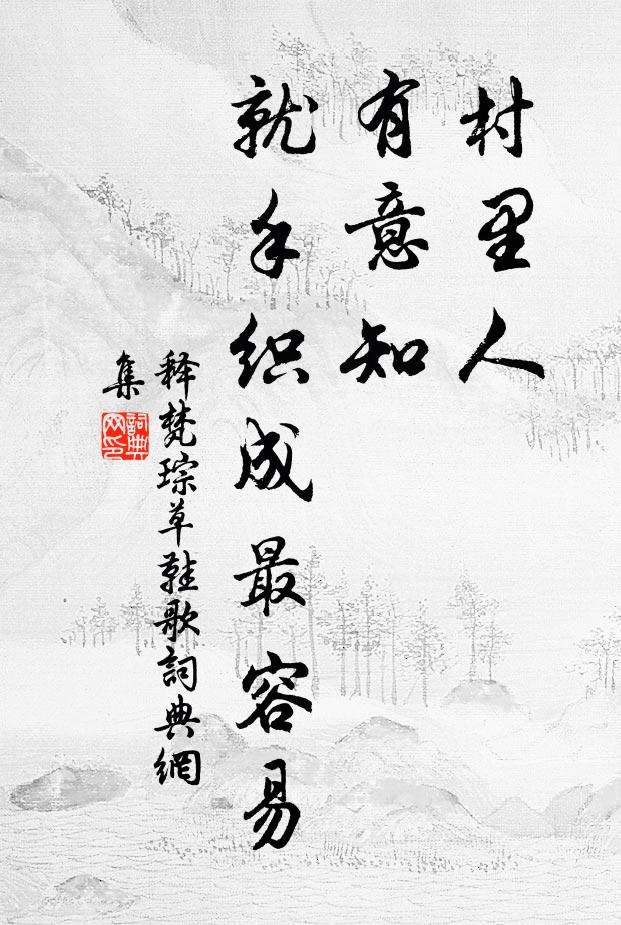 村里人
有意知
就手织成最容易
释梵琮草鞋歌詞典網
集
詞典
网印